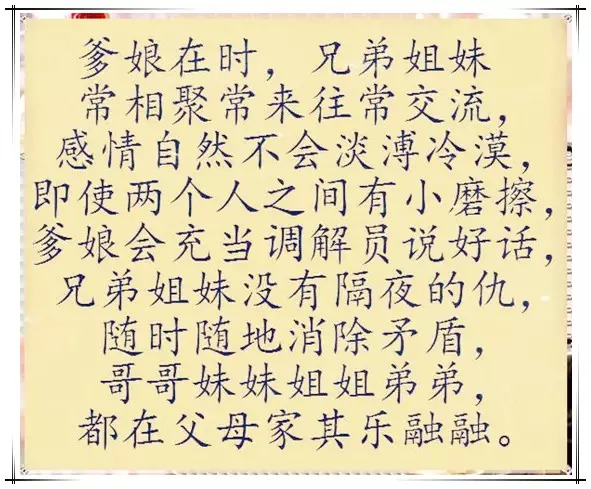 爹娘在时，兄弟姐妹
常相聚常来往常交流，
感情自然不会淡溥冷漠，
即使两个人之间有小磨擦，
爹娘会充当调解员说好话，
兄弟姐妹没有隔夜的仇，
随时随地消除矛盾，
哥哥妹妹姐姐弟弟，
都在父母家其乐融融。